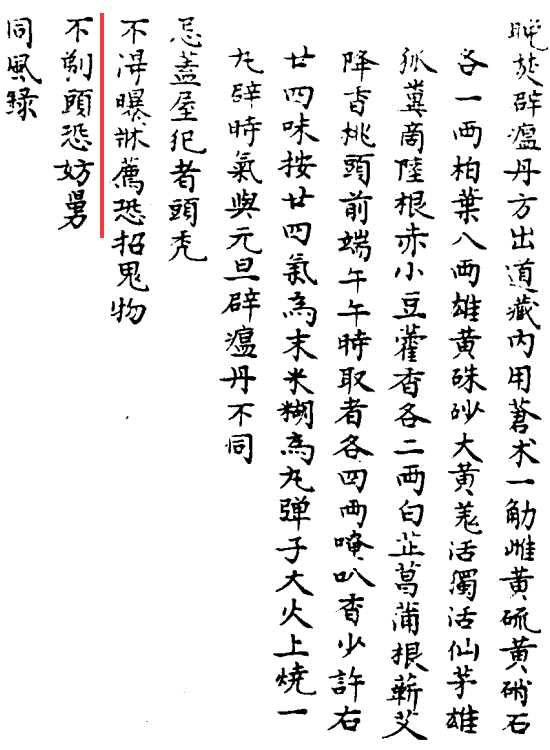 晚焚辟瘟丹方出道藏內用蒼术一觔雌黃硫黃硝石
各一兩柏葉八兩雄黃硃砂大黃羌活獨活仙茅雄
狐糞商陸根赤小豆藿香各二兩白芷菖蒲根蘄艾
降香桃頭前端午午時取者各四兩唵叭香少許右
廿四味按廿四氣為末米糊為丸弹子大火上燒一
丸辟時氣與元旦辟瘟丹不同
忌蓋屋犯者頭禿
不淂曝牀薦恐招鬼物
不剃頭恐妨舅
同風録